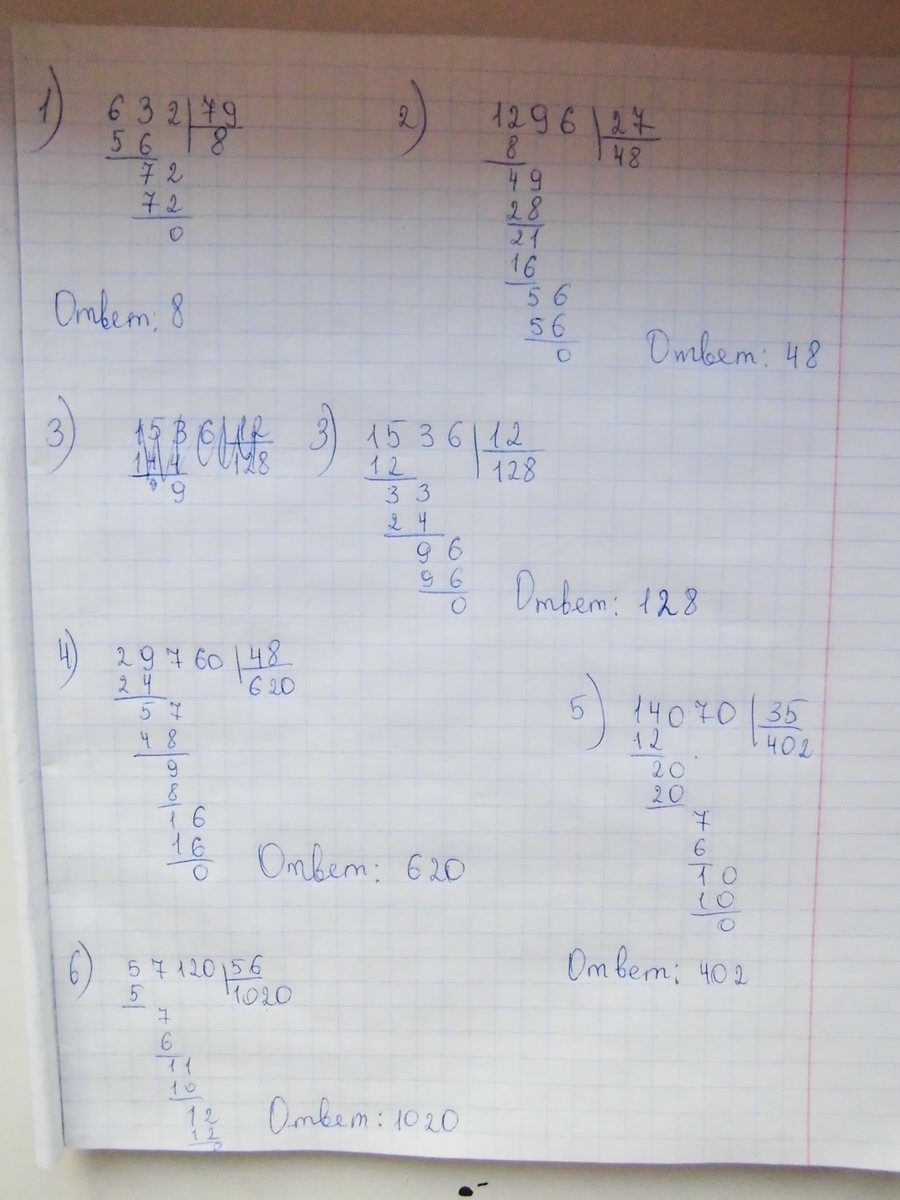 1) 632 | 79
56 8
72
72
0
Ответ: 8
2) 1296 | 27
8 48
49
28
21
16
56
56
0
Ответ: 48
3) 1536 12
144 128
9
3) 1536 | 12
12 128
33
24
96
96
0
Ответ: 128
4) 29760 | 48
24 620
57
48
9
8
16
16
0
Ответ: 620
5) 14070 | 35
12 402
20
20
7
6
10
10
0
Ответ: 402
6) 57120 | 56
5 1020
7
6
11
10
12
12
0
Ответ: 1020